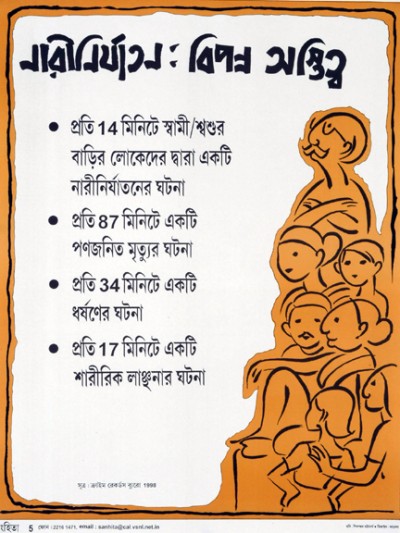 নারীনির্যাতন : বিপন্ন অস্তিত্ব
• প্রতি 14 মিনিটে স্বামী/শ্বশুর
বাড়ির লোকেদের দ্বারা একটি
নারীনির্যাতনের ঘটনা
• প্রতি 87 মিনিটে একটি
পণজনিত মৃত্যুর ঘটনা
• প্রতি 34 মিনিটে একটি
ধর্ষণের ঘটনা
• প্রতি 17 মিনিটে একটি
শারীরিক লাঞ্ছনার ঘটনা
সূত্র : ক্রাইম রেকর্ডস ব্যুরো 1998
5 ফোন : 2216 1471, email : sanhita@cal.vsnl.net.in